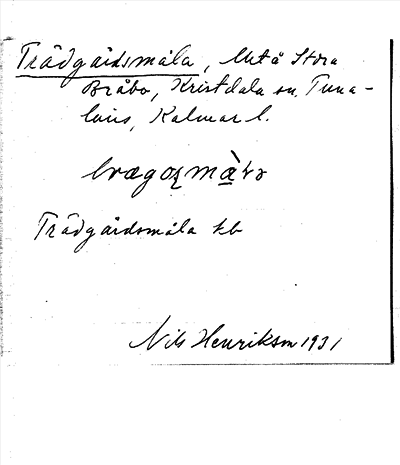 Trädgårdsmåla, Utå Stora
Bråbo, Kristdala sn. Tuna-
läns, Kalmar l.
Trädgårdsmåla kb
Nils Henrikson 1931